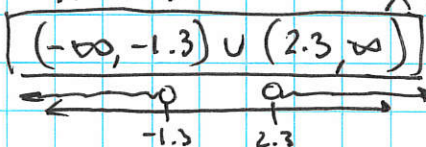 (-∞, -1.3) ∪ (2.3, ∞)
-1.3 2.3